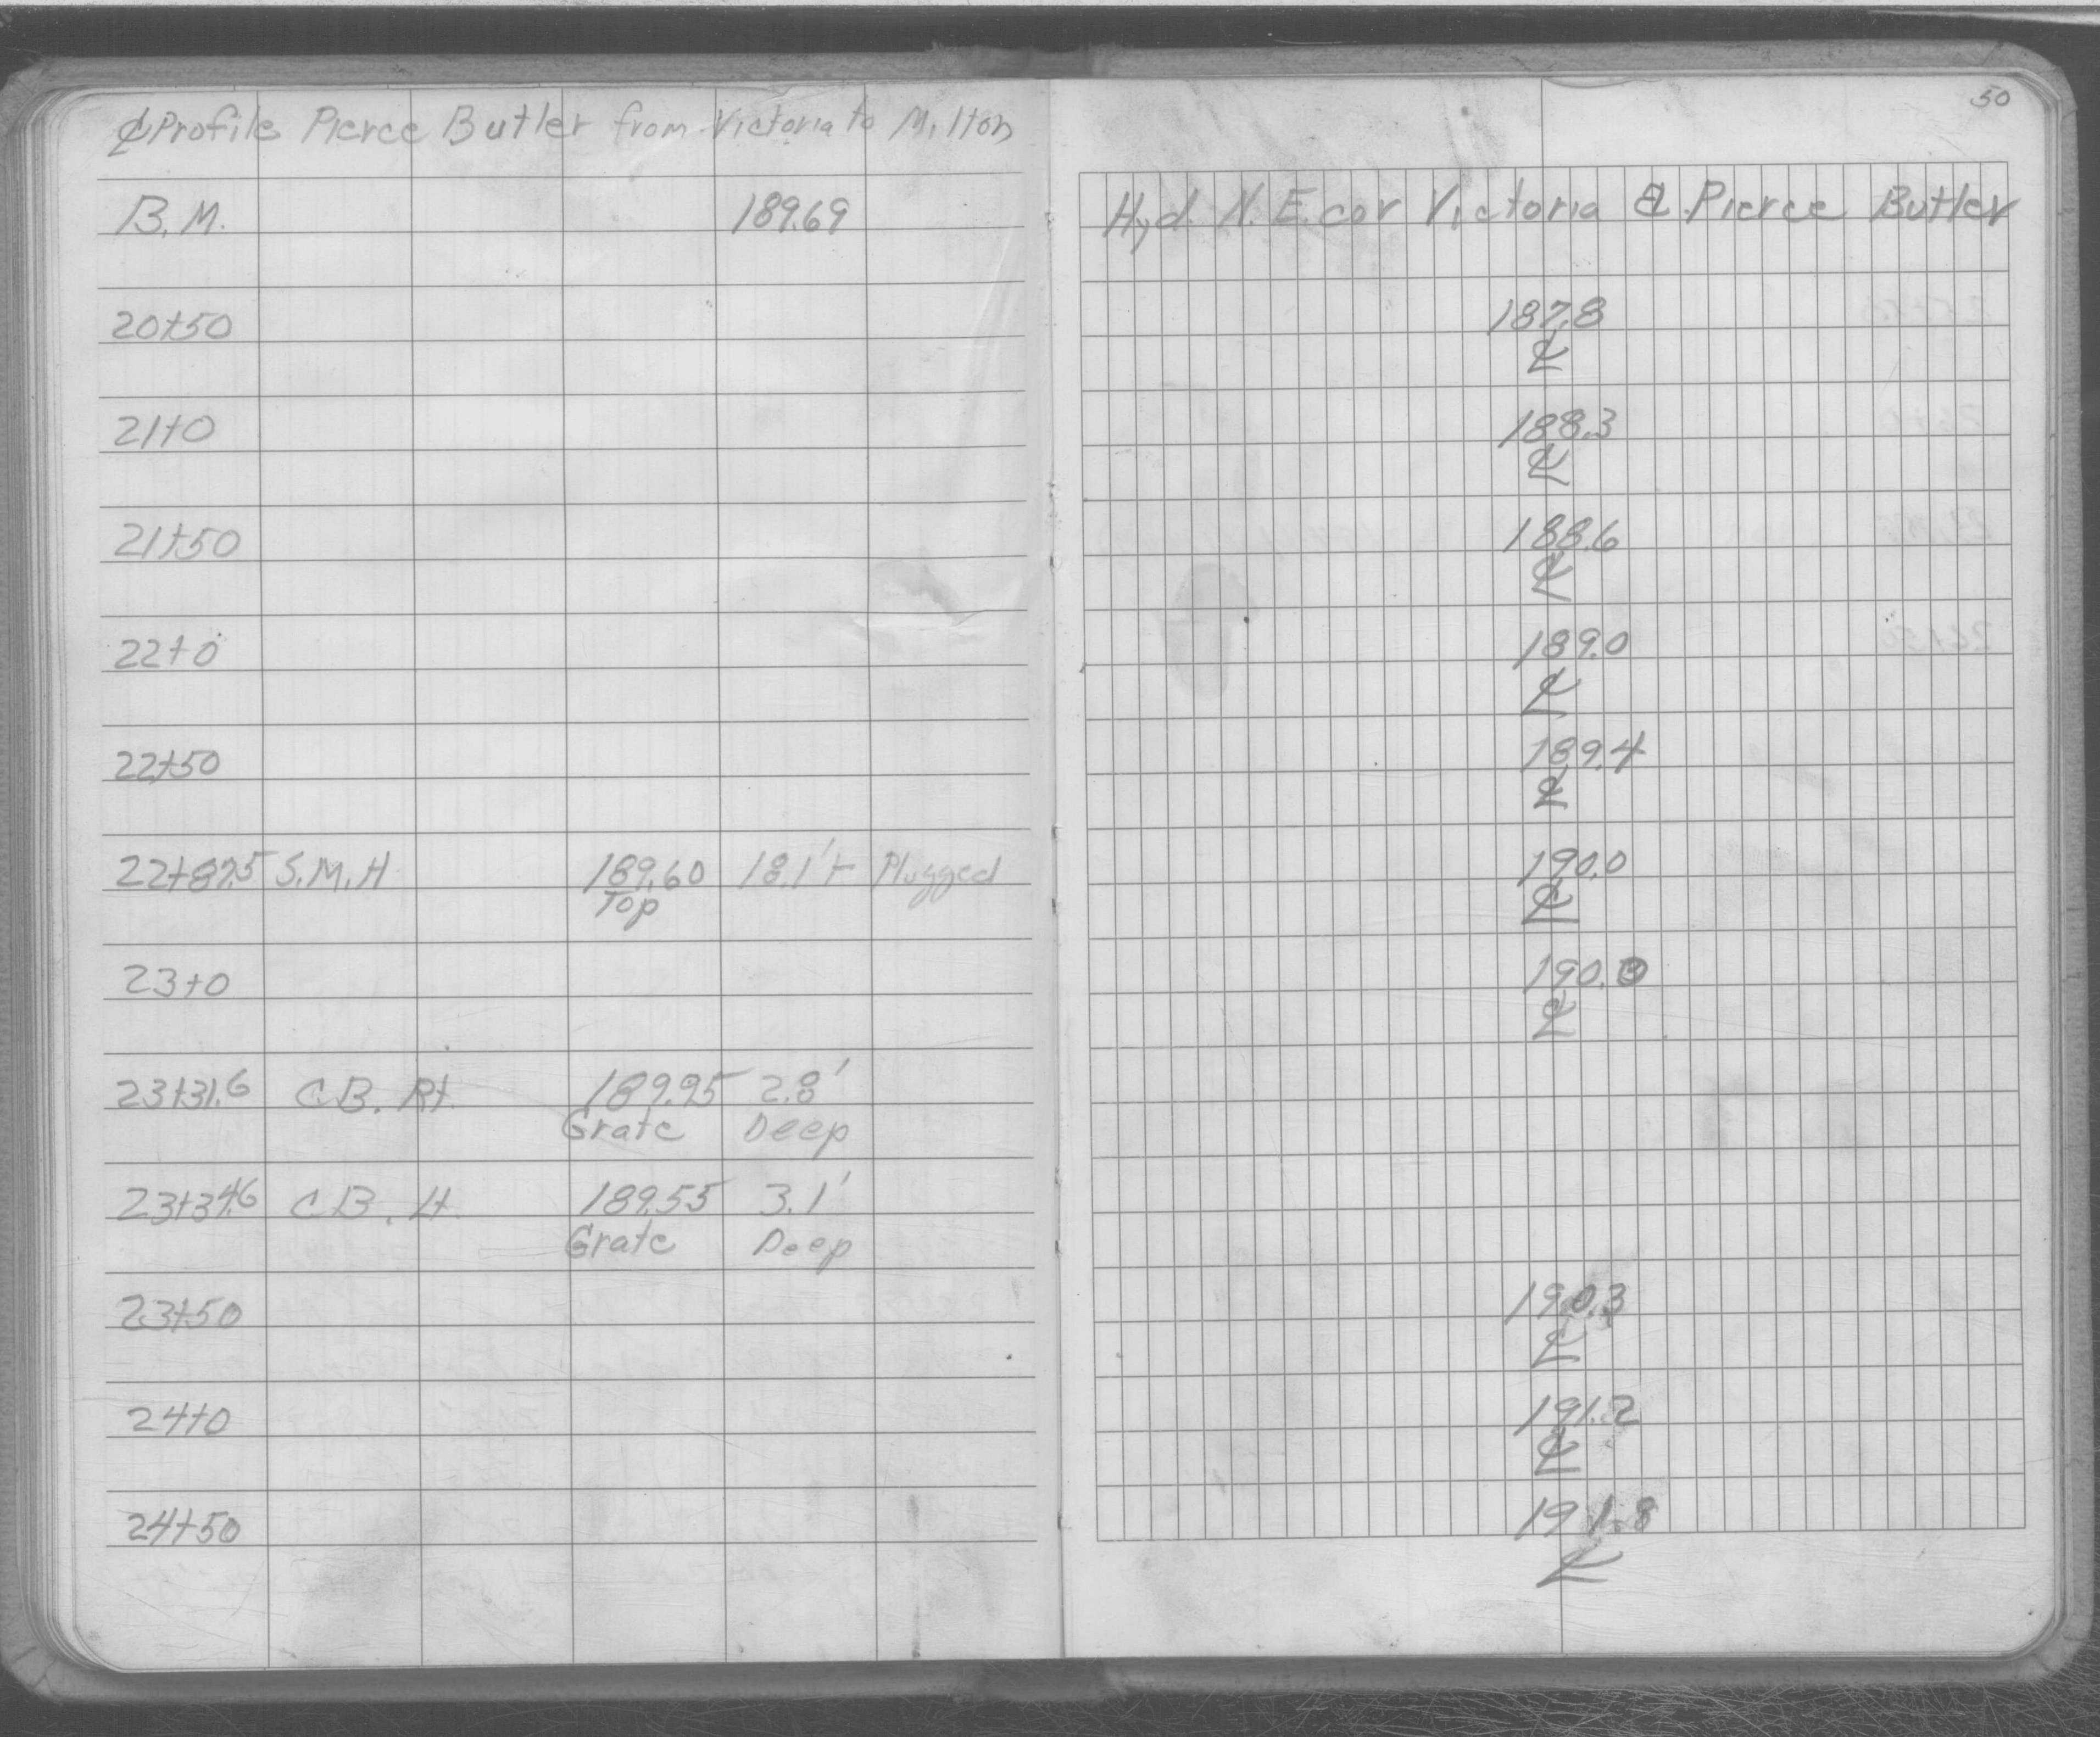 50
℄ Profile Pierce Butler from Victoria to Milton
B.M. 189.69 Hyd. N.E. cor Victoria & Pierce Butler
20+50 187.8
℄
21+0 188.3
℄
21+50 188.6
℄
22+0 189.0
℄
22+50 189.4
℄
22+87.5 S.M.H 189.60 18.1'± Plugged 190.0
Top ℄
23+0
℄
23+31.6 C.B. Rt. 189.95 2.8'
Grate Deep
23+34.6 C.B. Lt. 189.55 3.1'
Grate Deep
23+50 190.3
℄
24+0 191.2
℄
24+50 191.8
℄